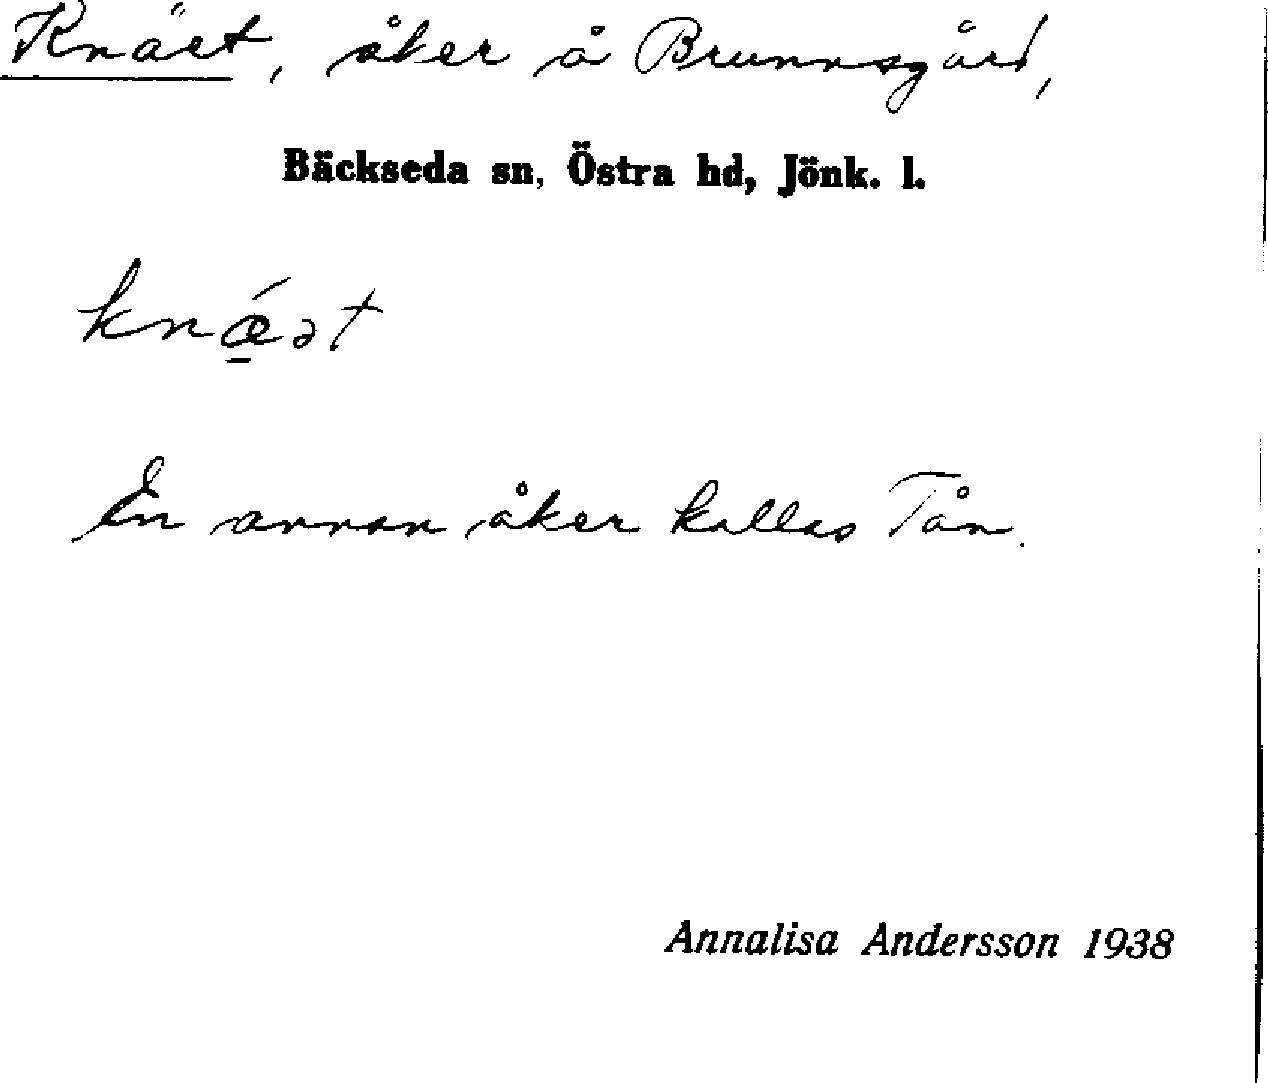 Knäet, åker å Brunnsgård,
Bäckseda sn, Östra hd, Jönk. l.
knǽ̱ət
En annan åker kallas Tån.
Annalisa Andersson 1938